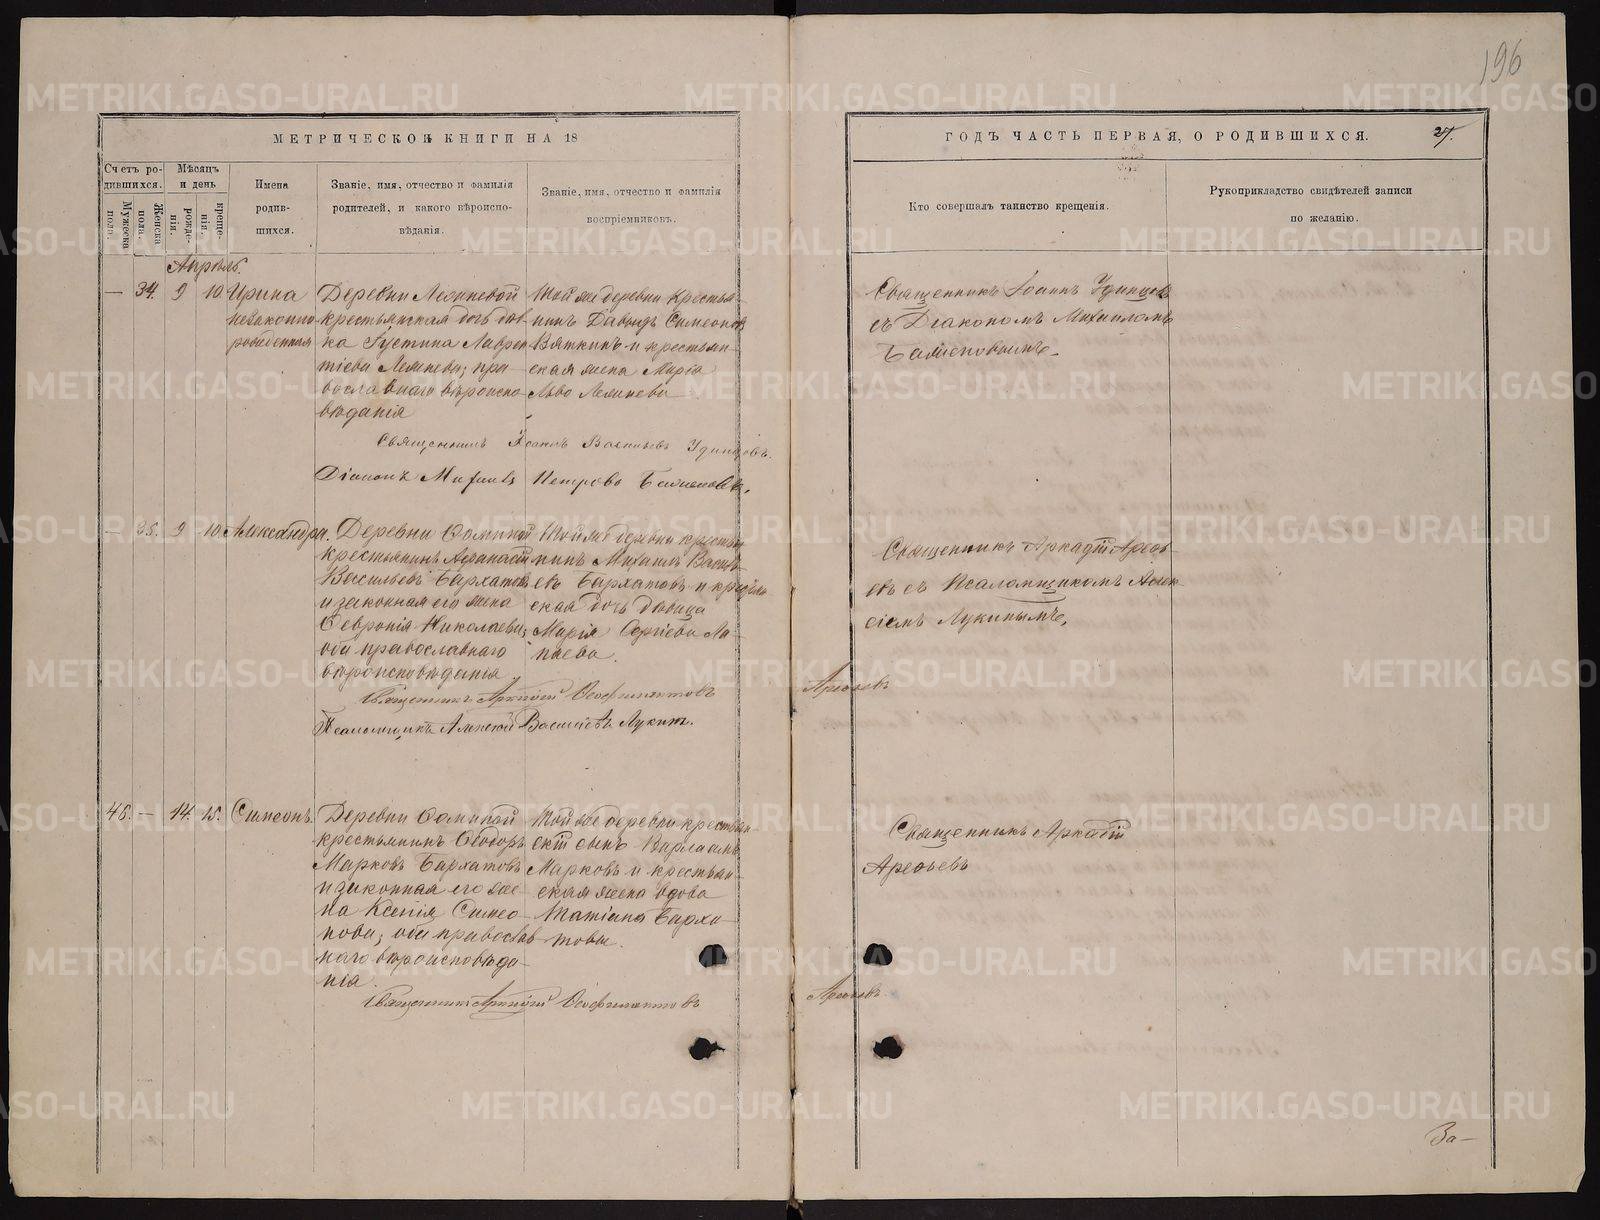 196
МЕТРИЧЕСКОЙ КНИГИ НА 18
ГОДЪ ЧАСТЬ ПЕРВАЯ, О РОДИВШИХСЯ.
27.
Счетъ родившихся.
Мужеска пола.
Женска пола.
Мѣсяцъ и день
рожденія.
крещенія.
Имена родившихся.
Званіе, имя, отчество и фамилія родителей, и какого вѣроисповѣданія.
Званіе, имя, отчество и фамилія воспріемниковъ.
Кто совершалъ таинство крещенія.
Рукоприкладство свидѣтелей записи по желанію.
Апрѣль.
— 34. 9 10.
Ирина
незаконно
рожденная
Деревни
крестьянская дочь дѣв
ка Іустина Лаврен
тіева
православнаго вѣроиспо
вѣданія
Той же деревни крестья
нинъ Давидъ Симеоновъ
Вяткинъ и крестьян
ская жена Марія
Священникъ Іоаннъ Удинцовъ
съ Діакономъ Михаиломъ
Священникъ Іоаннъ Васильевъ Удинцовъ.
Діаконъ Михаилъ Петровъ
— 35. 9 10.
Александра.
Деревни
крестьянинъ Аѳанасій
Васильевъ Бархатовъ
и законная его жена
Февронія Николаева;
оба православнаго
вѣроисповѣданія
Той же деревни крестья
нинъ Михаилъ Василь
евъ Бархатовъ и крестьян
ская дочь дѣвица
Марія Сергіева Ла
Священникъ Аркадій Арефь
евъ съ Псаломщикомъ Алек
сіемъ Лукинымъ.
Священникъ Аркадій Феофилактовъ Арефьевъ
Псаломщикъ Алексій Васильевъ Лукин.
46. — 14. 15.
Симеонъ.
Деревни
крестьянинъ Ѳеодоръ
Марковъ Бархатовъ
и законная его же
на Ксенія Симео
нова; оба православ
наго вѣроисповѣда
нія.
Той же деревни крестьян
скій сынъ Варлаамъ
Марковъ и крестьян
ская жена вдова
Татіана Барха
товы.
Священникъ Аркадій
Арефьевъ
Священникъ Аркадій Феофилактовъ Арефьевъ.
За—
METRIKI.GASO-URAL.RU